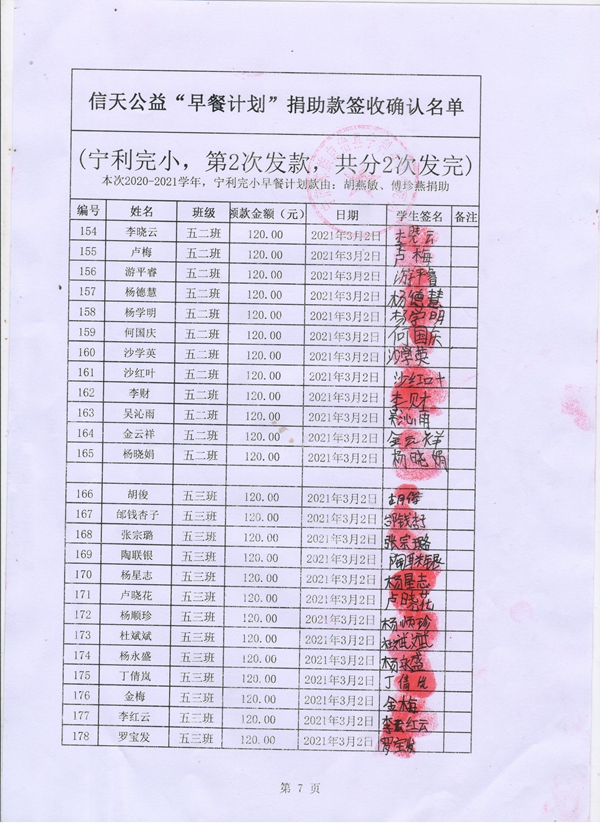 信天公益“早餐计划”捐助款签收确认名单
(宁利完小，第2次发款，共分2次发完)
本次2020-2021学年，宁利完小早餐计划款由：胡燕敏、傅珍燕捐助
编号 姓名 班级 领款金额（元） 日期 学生签名 备注
154 李晓云 五二班 120.00 2021年3月2日 李晓云
155 卢梅 五二班 120.00 2021年3月2日 卢梅
156 游平睿 五二班 120.00 2021年3月2日 游平睿
157 杨德慧 五二班 120.00 2021年3月2日 杨德慧
158 杨学明 五二班 120.00 2021年3月2日 杨学明
159 何国庆 五二班 120.00 2021年3月2日 何国庆
160 沙学英 五二班 120.00 2021年3月2日 沙学英
161 沙红叶 五二班 120.00 2021年3月2日 沙红叶
162 李财 五二班 120.00 2021年3月2日 李财
163 吴沁雨 五二班 120.00 2021年3月2日 吴沁雨
164 金云祥 五二班 120.00 2021年3月2日 金云祥
165 杨晓娟 五二班 120.00 2021年3月2日 杨晓娟
166 胡俊 五三班 120.00 2021年3月2日 胡俊
167 邰钱杏子 五三班 120.00 2021年3月2日
168 张宗璐 五三班 120.00 2021年3月2日 张宗璐
169 陶联银 五三班 120.00 2021年3月2日 陶联银
170 杨星志 五三班 120.00 2021年3月2日 杨星志
171 卢晓花 五三班 120.00 2021年3月2日 卢晓花
172 杨顺珍 五三班 120.00 2021年3月2日 杨顺珍
173 杜斌斌 五三班 120.00 2021年3月2日 杜斌斌
174 杨永盛 五三班 120.00 2021年3月2日 杨永盛
175 丁倩岚 五三班 120.00 2021年3月2日 丁倩
176 金梅 五三班 120.00 2021年3月2日 金梅
177 李红云 五三班 120.00 2021年3月2日 李红云
178 罗宝发 五三班 120.00 2021年3月2日 罗宝发
第 7 页